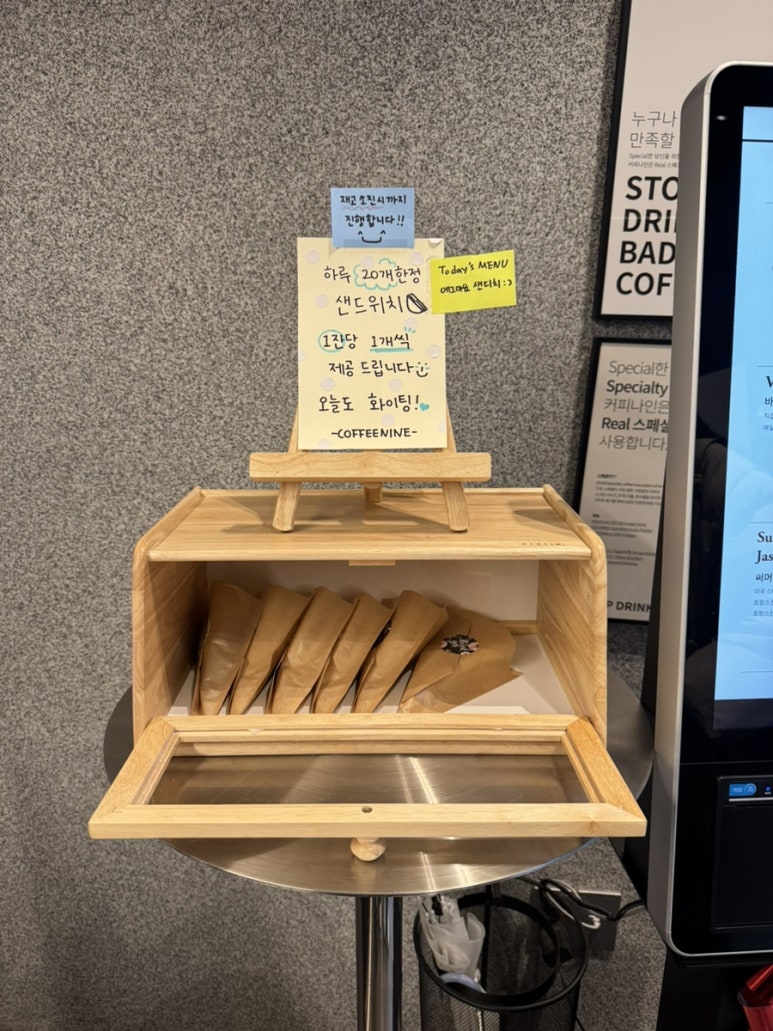 재고소진시까지
진행합니다!!
하루 20개한정
샌드위치
1잔당 1개씩
제공 드립니다
오늘도 화이팅!
-COFFEENINE-
Today's MENU
에그마요 샌디치:)
누구나
만족할
STO
DRI
BAD
COF
Special한
Specialty
커피나인은
Real 스페셜
사용합니다.
P DRINK
Su
Jas
써머